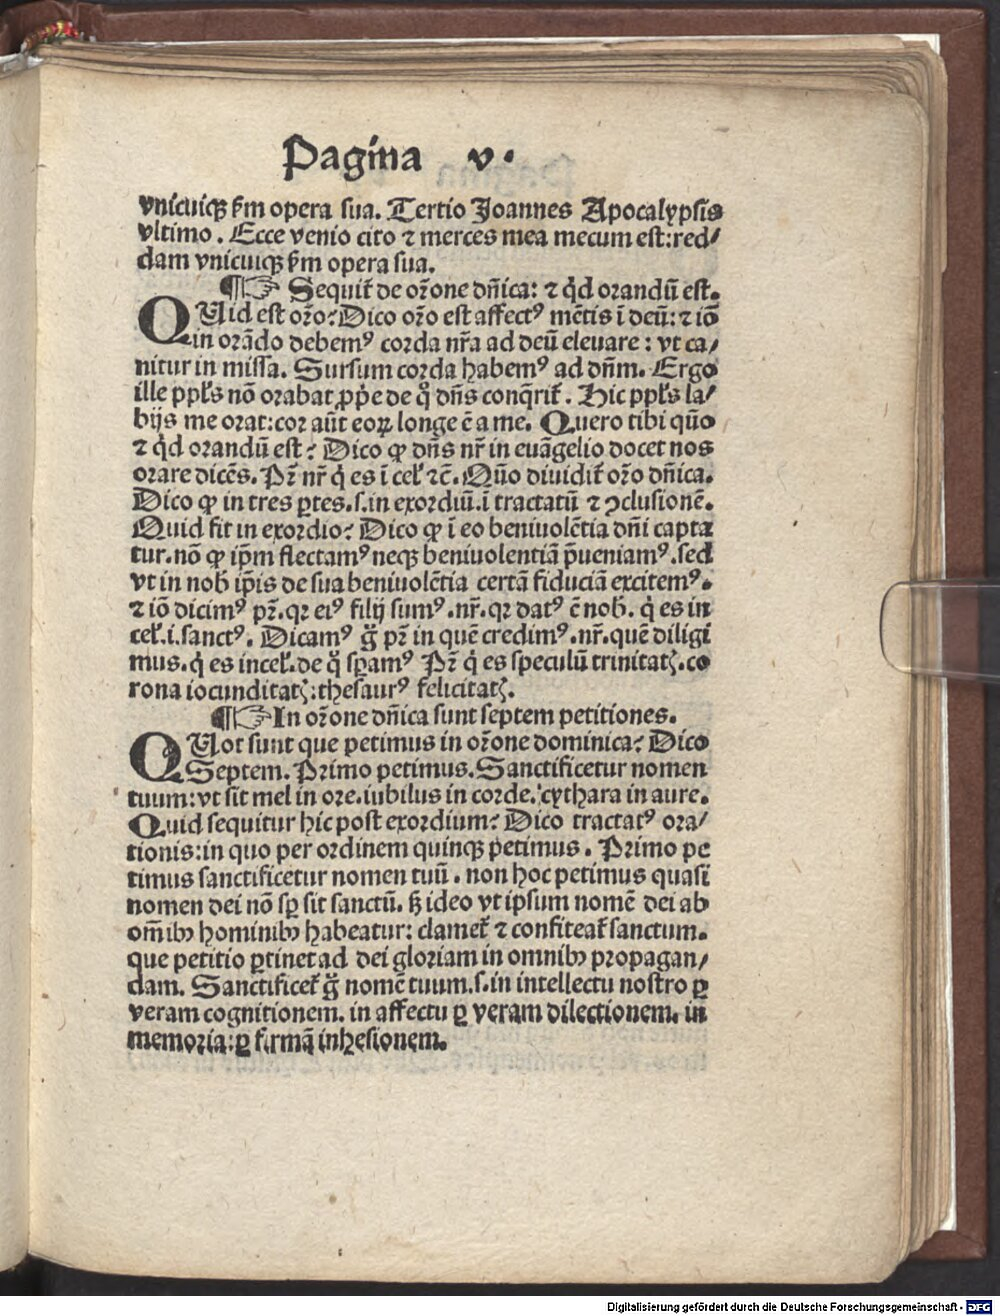 Pagina v.
vnicuiqꝫ ẜm opera sua. Tertio Joannes Apocalypsis
vltimo. Ecce venio cito ⁊ merces mea mecum est: red/
dam vnicuiqꝫ ẜm opera sua.
¶☞ Sequit̃ de or̃one dñica: ⁊ qͥd orandũ est.
QUid est or̃o? Dico or̃o est affectꝰ mẽtis ĩ deũ: ⁊ iõ
in orãdo debemꝰ corda nr̃a ad deũ eleuare: vt ca/
nitur in missa. Sursum corda habemꝰ ad dñm. Ergo
ille ppl̃s nõ orabat ꝓṗe de qͦ dñs conq̃rit̃. Hic ppl̃s la/
bijs me orat: cor aũt eoꝝ longe ẽ a me. Quero tibi qũo
⁊ qͥd orandũ est? Dico ꝙ dñs nr̃ in euãgelio docet nos
orare dicẽs. Pr̃ nr̃ qͥ es ĩ cel̃ ⁊c̃. Qũo diuidit̃ or̃o dñica.
Dico ꝙ in tres ꝑtes. s. in exordiũ. ĩ tractatũ ⁊ ꝯclusionẽ.
Quid fit in exordio? Dico ꝙ ĩ eo beniuolẽtia dñi capta
tur. nõ ꝙ ip̃m flectamꝰ neqꝫ beniuolentiã p̃ueniamꝰ. sed
vt in nob̃ ip̃is de sua beniuolẽtia certã fiduciã excitemꝰ.
⁊ iõ dicimꝰ pr̃. qꝛ eiꝰ filij sumꝰ. nr̃. qꝛ datꝰ ẽ nob̃. qͥ es in
cel̃. i. sanctꝰ. Dicamꝰ g̃ pr̃ in quẽ credimꝰ. nr̃. quẽ diligi
mus. qͥ es in cel̃. de qͦ sp̃amꝰ Pr̃ qͥ es speculũ trinitatꝭ. co
rona iocunditatꝭ: thesaurꝰ felicitatꝭ.
¶☞ In or̃one dñica sunt septem petitiones.
QUot sunt que petimus in or̃one dominica? Dico
Septem. Primo petimus. Sanctificetur nomen
tuum: vt sit mel in ore. iubilus in corde. cythara in aure.
Quid sequitur hic post exordium? Dico tractatꝰ ora/
tionis: in quo per ordinem quinqꝫ petimus. Primo pe
timus sanctificetur nomen tuũ. non hoc petimus quasi
nomen dei nõ sꝑ sit sanctũ. ꝭ ideo vt ipsum nomẽ dei ab
om̃ibꝰ hominibꝰ habeatur: clamet̃ ⁊ confiteat̃ sanctum.
que petitio ꝑtinet ad dei gloriam in omnibꝰ propagan/
dam. Sanctificet̃ g̃ nomẽ tuum. s. in intellectu nostro ꝑ
veram cognitionem. in affectu ꝑ veram dilectionem. in
memoria: ꝑ firmã inhesionem.
Digitalisierung gefördert durch die Deutsche Forschungsgemeinschaft - DFG